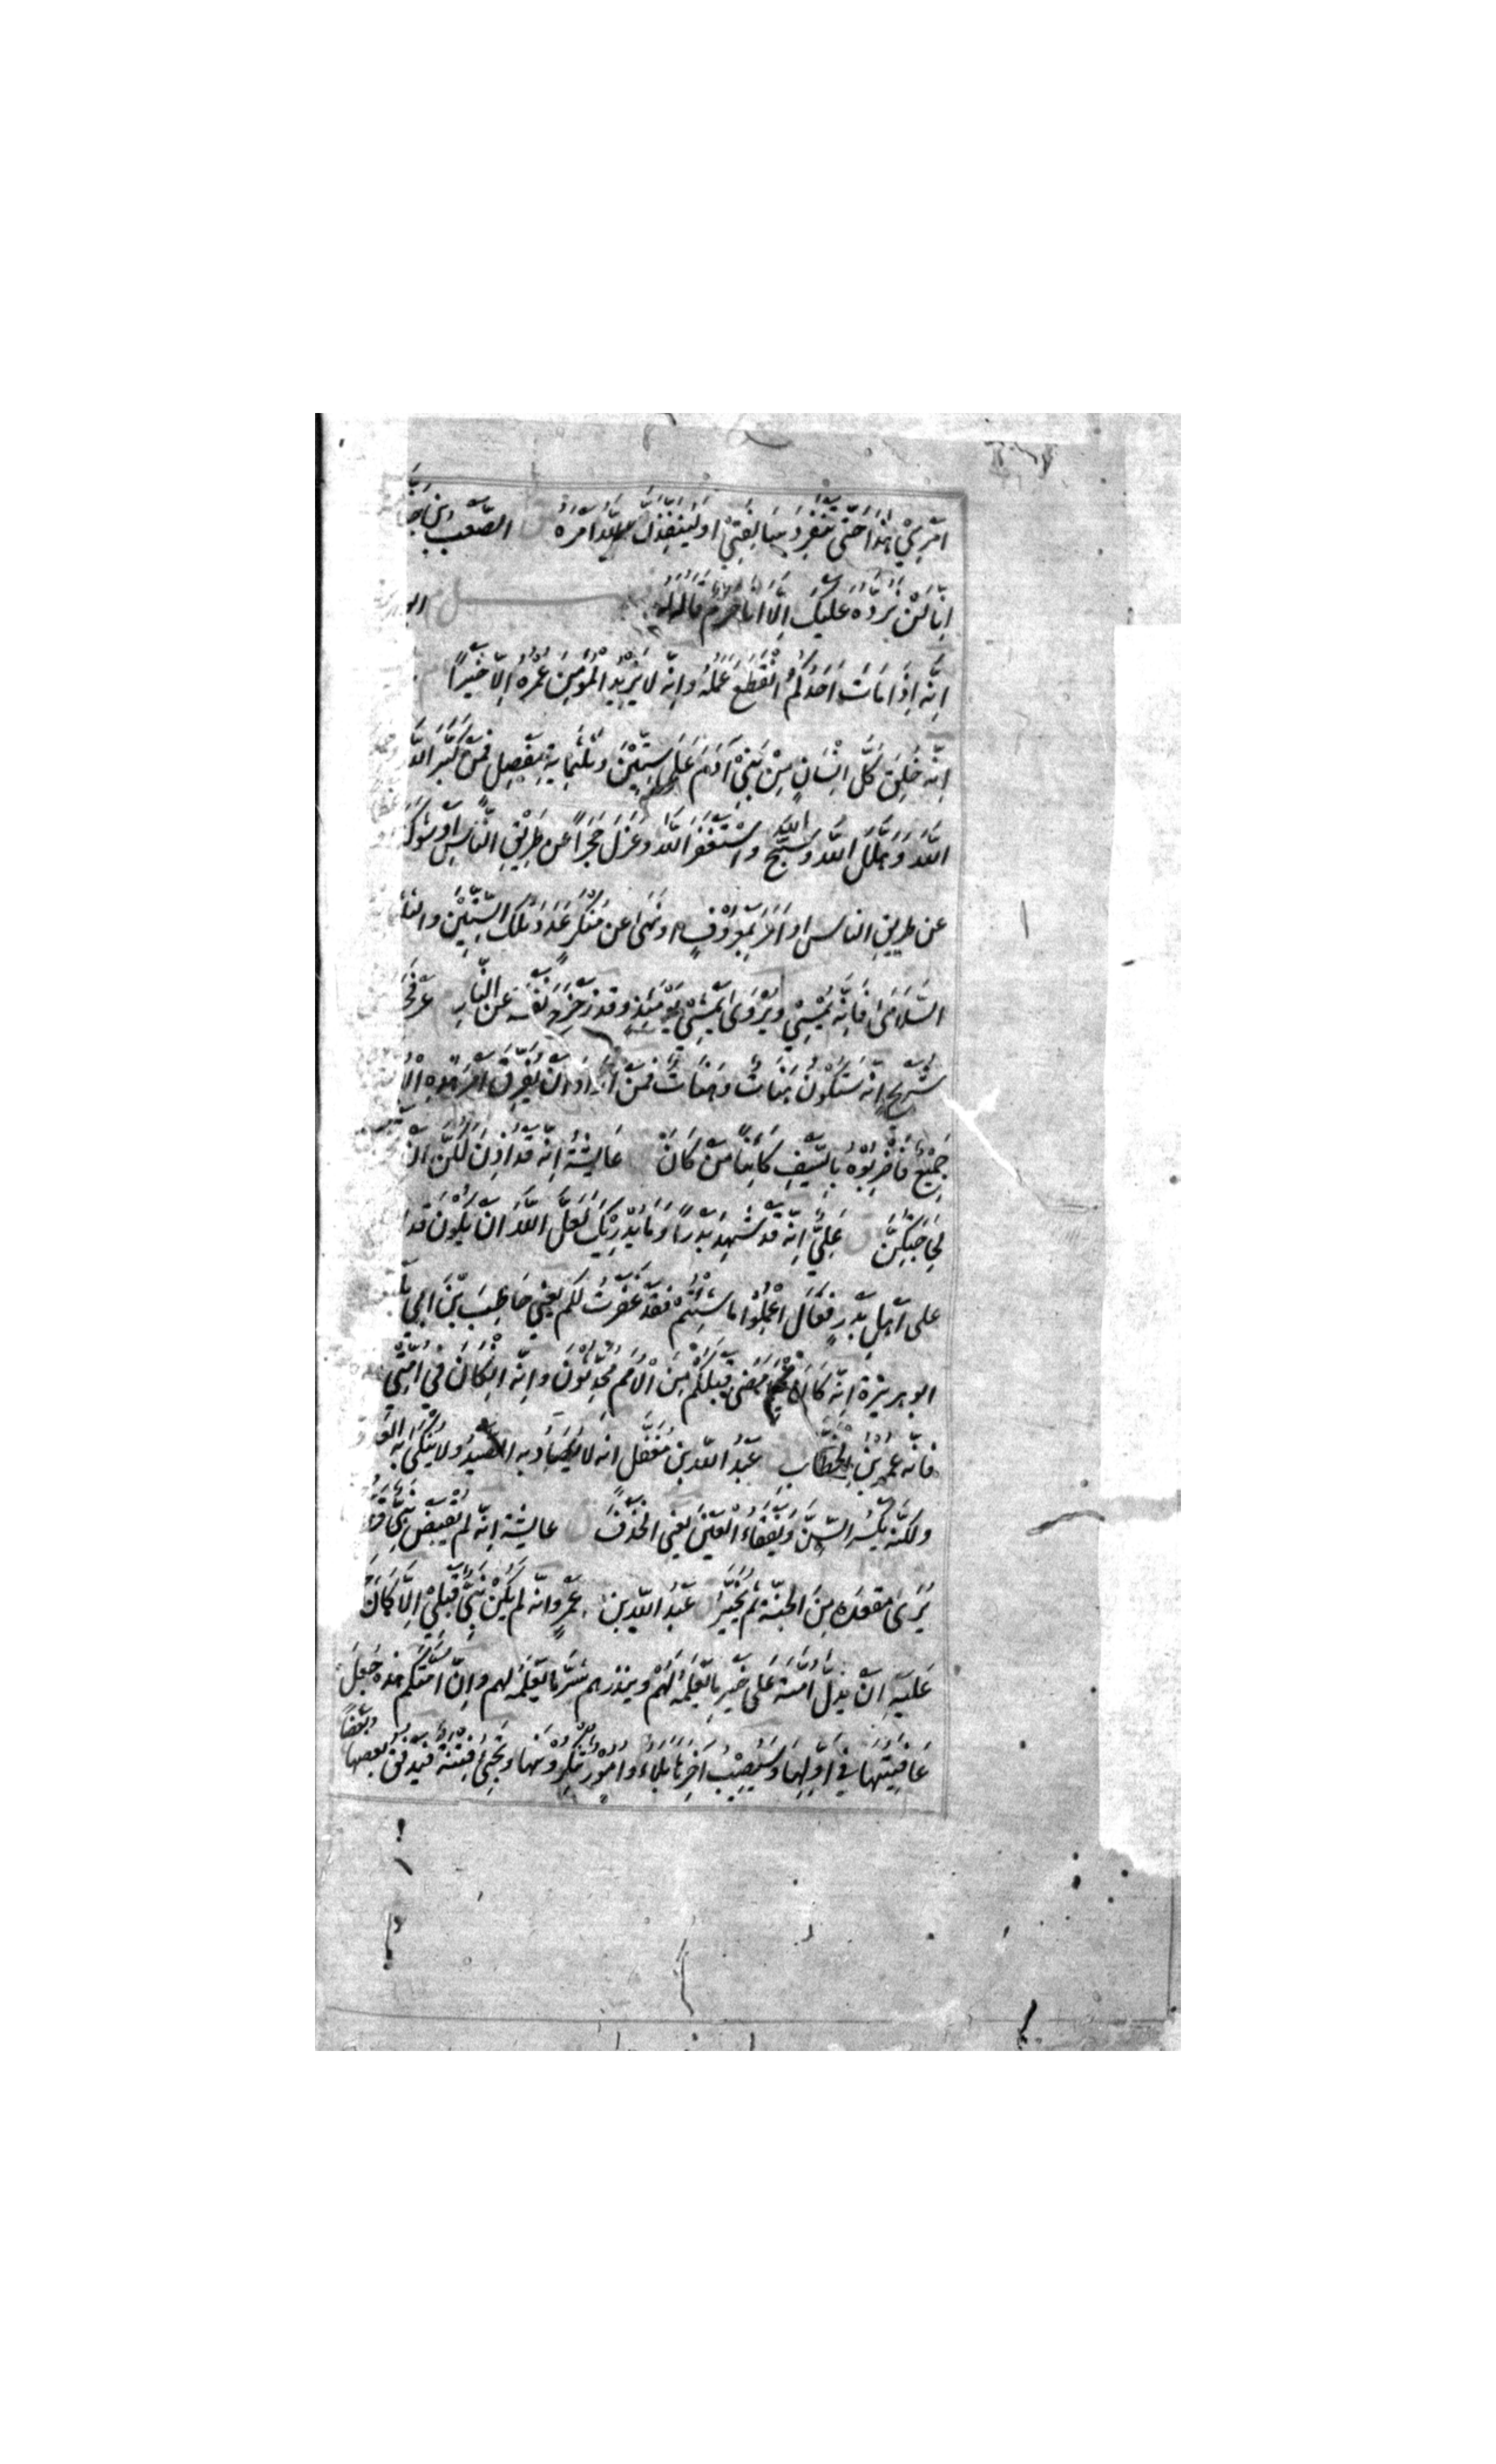 اَمْرِيْ هٰذَا حَتّٰى تَنْفَرِدَ سَالِفَتِيْ اَوْ لَيُنْفِذَنَّ اللّٰهُ اَمْرَهُ الصَّعْبُ بْنُ
اِنَّا لَنْ نَرُدَّهُ عَلَيْكَ اِلَّا اَنَّا حُرُمٌ قَالَهُ لَهُ
اِنَّهُ اِذَا مَاتَ اَحَدُكُمُ انْقَطَعَ عَمَلُهُ وَاِنَّهُ لَا يَزِيْدُ الْمُؤْمِنَ عُمْرُهُ اِلَّا خَيْرًا
اِنَّهُ خُلِقَ كُلُّ اِنْسَانٍ مِنْ بَنِيْ اٰدَمَ عَلٰى سِتِّيْنَ وَثَلٰثِمِايَةِ مَفْصِلٍ فَمَنْ كَبَّرَ اللّٰهَ
اللّٰهَ وَهَلَّلَ اللّٰهَ وَسَبَّحَ اللّٰهَ وَاسْتَغْفَرَ اللّٰهَ وَعَزَلَ حَجَرًا عَنْ طَرِيْقِ النَّاسِ اَوْ شَوْكَةً
عن طريقِ الناس او اَمَرَ بِمَعْرُوْفٍ او نَهٰى عن مُنْكَرٍ عَدَدَ تِلْكَ السِّتِّيْنَ وَالثَّلٰثِ
السُّلَامٰى فَاِنَّهُ يُمْسِيْ وَيُرْوٰى يَمْشِيْ يَوْمَئِذٍ وقد زَحْزَحَ نَفْسَهُ عَنِ النَّارِ عَرْفَجَةُ
شُرَيْحٍ اِنَّهُ سَتَكُوْنُ هَنَاتٌ وَهَنَاتٌ فَمَنْ اَرَادَ اَنْ يُفَرِّقَ اَمْرَ هٰذِهِ الْاُ
جَمِيْعٌ فَاضْرِبُوْهُ بِالسَّيْفِ كَائِنًا مَنْ كَانَ عَايِشَةُ اِنَّهُ قَدْ اُذِنَ لَكُنَّ اَنْ
لِحَاجَتِكُنَّ عَلِيٌّ اِنَّهُ قَدْ شَهِدَ بَدْرًا وَمَا يُدْرِيْكَ لَعَلَّ اللّٰهَ اَنْ يَكُوْنَ قَدِ
على اَهْلِ بَدْرٍ فَقَالَ اعْمَلُوْا مَا شِئْتُمْ فَقَدْ غَفَرْتُ لَكُمْ يعني حَاطِبَ بْنَ ابي بَلْ
ابو هريرة اِنَّهُ كَانَ فيما مَضٰى قَبْلَكُمْ مِنَ الْاُمَمِ مُحَدَّثُوْنَ وَاِنَّهُ اِنْ كَانَ فِيْ اُمَّتِيْ
فَاِنَّهُ عُمَرُ بْنُ الْخَطَّابِ عَبْدُ اللّٰهِ بن مُغَفَّلٍ انه لا يُصَادُ بِهِ الصَّيْدُ ولا يُنْكَأُ بِهِ الْعَدُوُّ
ولكنَّه يَكْسِرُ السِّنَّ وَيَفْقَأُ الْعَيْنَ يَعْنِي الْخَذْفَ عايشة اِنَّهُ لَمْ يُقْبَضْ نَبِيٌّ قَطُّ
يُرٰى مَقْعَدَهُ مِنَ الْجَنَّةِ ثُمَّ يُخَيَّرُ عَبْدُ اللّٰهِ بن عمرو اِنَّهُ لَمْ يَكُنْ نَبِيٌّ قَبْلِيْ اِلَّا كَانَ
عَلَيْهِ اَنْ يَدُلَّ اُمَّتَهُ عَلٰى خَيْرِ مَا يَعْلَمُهُ لَهُمْ وينذرهم شَرَّ مَا يَعْلَمُهُ لهم وَاِنَّ اُمَّتَكُمْ هٰذِهِ جُعِلَ
عَافِيَتُهَا فِيْ اَوَّلِهَا وَسَيُصِيْبُ اٰخِرَهَا بَلَاءٌ وَاُمُوْرٌ تُنْكِرُوْنَهَا وَتَجِيْءُ فِتْنَةٌ فَيُدَقِّقُ بَعْضُهَا بَعْضًا